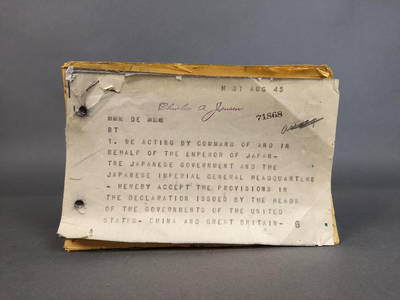 M 31 AUG 45
Charles A. Jensen
71868
DE
BT
1. WE ACTING BY COMMAND OF AND IN
BEHALF OF THE EMPEROR OF JAPAN-
THE JAPANESE GOVERNMENT AND THE
JAPANESE IMPERIAL GENERAL HEADQUARTERS
- HEREBY ACCEPT THE PROVISIONS IN
THE DECLARATION ISSUED BY THE HEADS
OF THE GOVERNMENTS OF THE UNITED
STATES- CHINA AND GREAT BRITAIN-